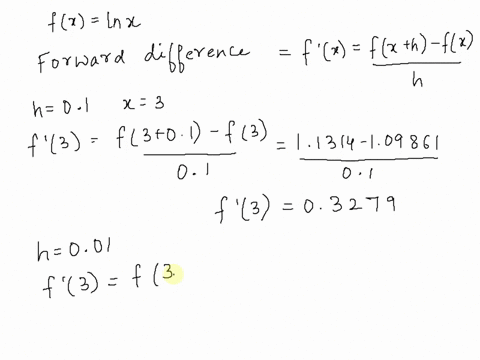 f(x) = ln x
Forward difference = f'(x) = f(x+h) - f(x) / h
h = 0.1 x = 3
f'(3) = f(3+0.1) - f(3) / 0.1 = 1.1314 - 1.09861 / 0.1
f'(3) = 0.3279
h = 0.01
f'(3) = f(3.